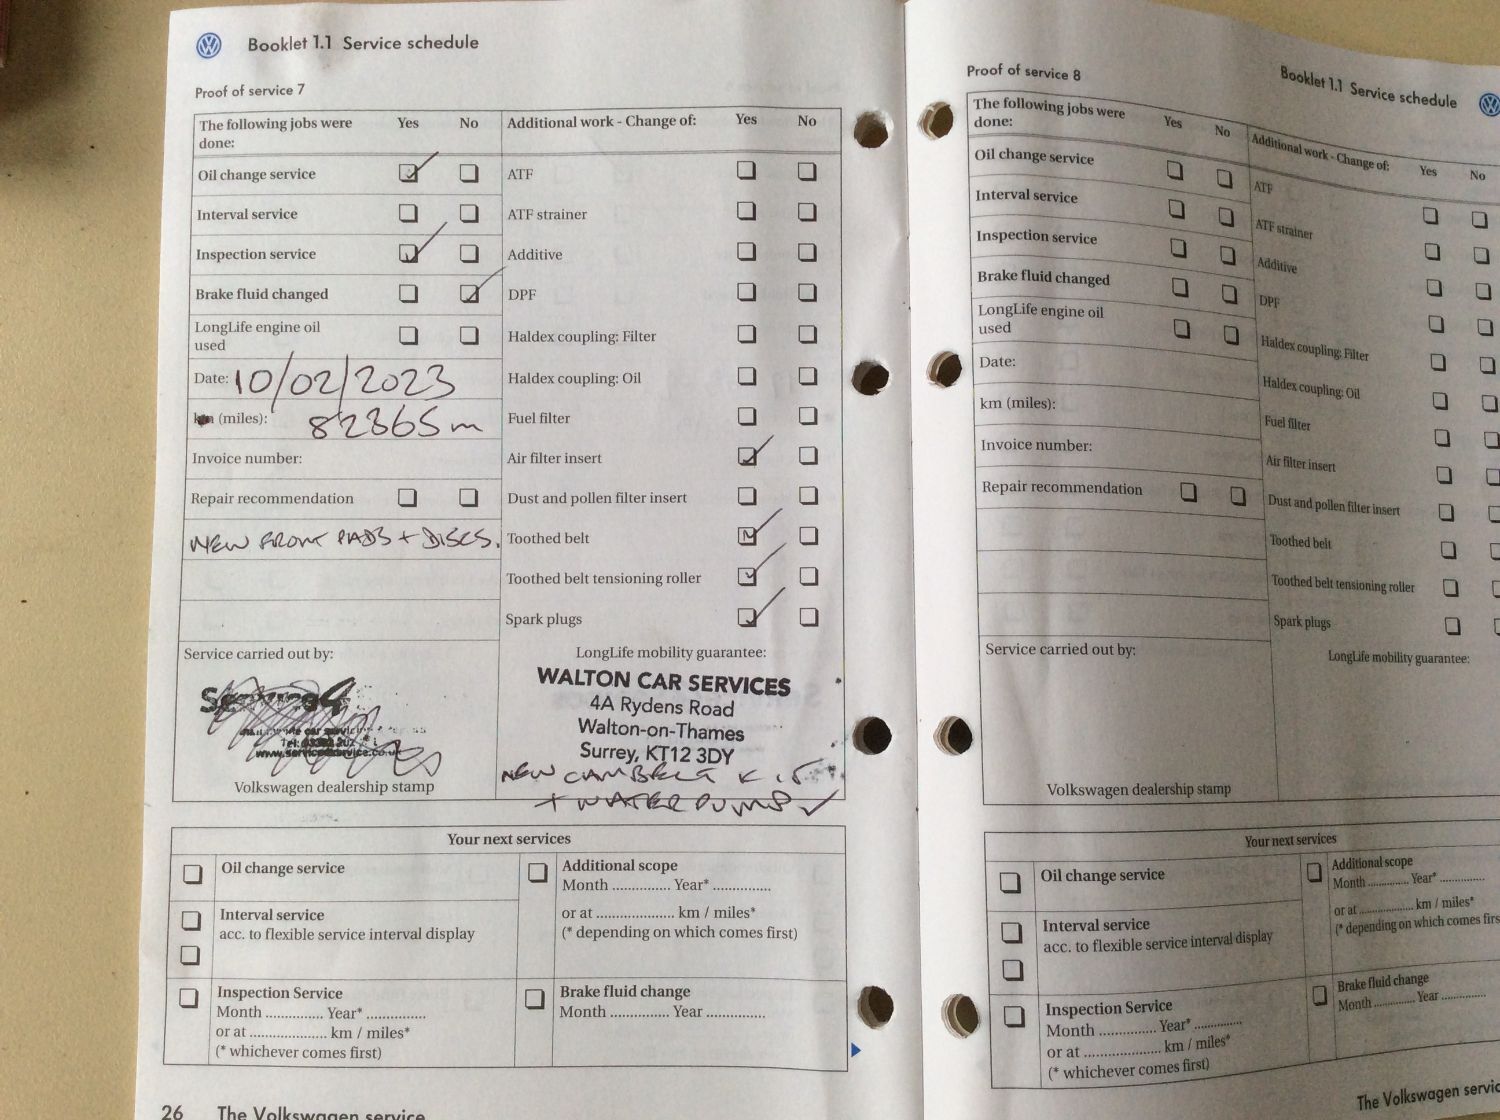 Booklet 1.1 Service schedule
Proof of service 7
The following jobs were done: Yes No
Additional work - Change of: Yes No
Oil change service
ATF
Interval service
ATF strainer
Inspection service
Additive
Brake fluid changed
DPF
LongLife engine oil used
Haldex coupling: Filter
Date: 10/02/2023
Haldex coupling: Oil
(miles): 82365m
Fuel filter
Invoice number:
Air filter insert
Repair recommendation
Dust and pollen filter insert
NEW FRONT PADS + DISCS.
Toothed belt
Toothed belt tensioning roller
Spark plugs
Service carried out by:
LongLife mobility guarantee:
WALTON CAR SERVICES
4A Rydens Road
Walton-on-Thames
Surrey, KT12 3DY
NEW CAMBELT KIT
+ WATER PUMP
Volkswagen dealership stamp
Your next services
Oil change service
Additional scope
Month ............... Year* ...............
Interval service
acc. to flexible service interval display
or at .................... km / miles*
(* depending on which comes first)
Inspection Service
Month ............... Year* ...............
or at .................... km / miles*
(* whichever comes first)
Brake fluid change
Month ............. Year ...............
26 The Volkswagen service
Booklet 1.1 Service schedule
Proof of service 8
The following jobs were done: Yes No
Additional work - Change of: Yes No
Oil change service
ATF
Interval service
ATF strainer
Inspection service
Additive
Brake fluid changed
DPF
LongLife engine oil used
Haldex coupling: Filter
Date:
Haldex coupling: Oil
km (miles):
Fuel filter
Invoice number:
Air filter insert
Repair recommendation
Dust and pollen filter insert
Toothed belt
Toothed belt tensioning roller
Spark plugs
Service carried out by:
LongLife mobility guarantee:
Volkswagen dealership stamp
Your next services
Oil change service
Additional scope
Month ............. Year* .............
Interval service
acc. to flexible service interval display
or at .................... km / miles*
(* depending on which comes firs
Inspection Service
Month ............... Year* ...............
or at .................... km / miles*
(* whichever comes first)
Brake fluid change
Month ............. Year ...............
The Volkswagen servic